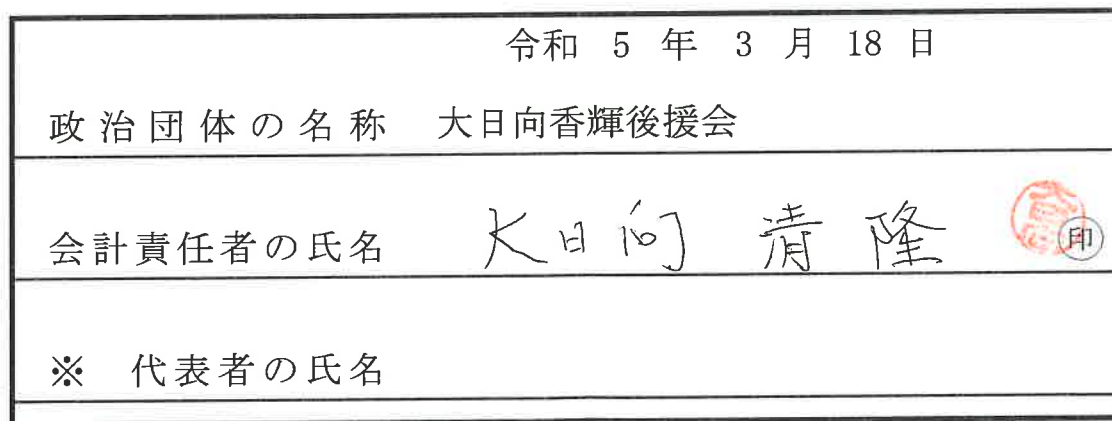 令和 5 年 3 月 18 日
政治団体の名称 大日向香輝後援会
会計責任者の氏名 大日向 清隆 印
※ 代表者の氏名